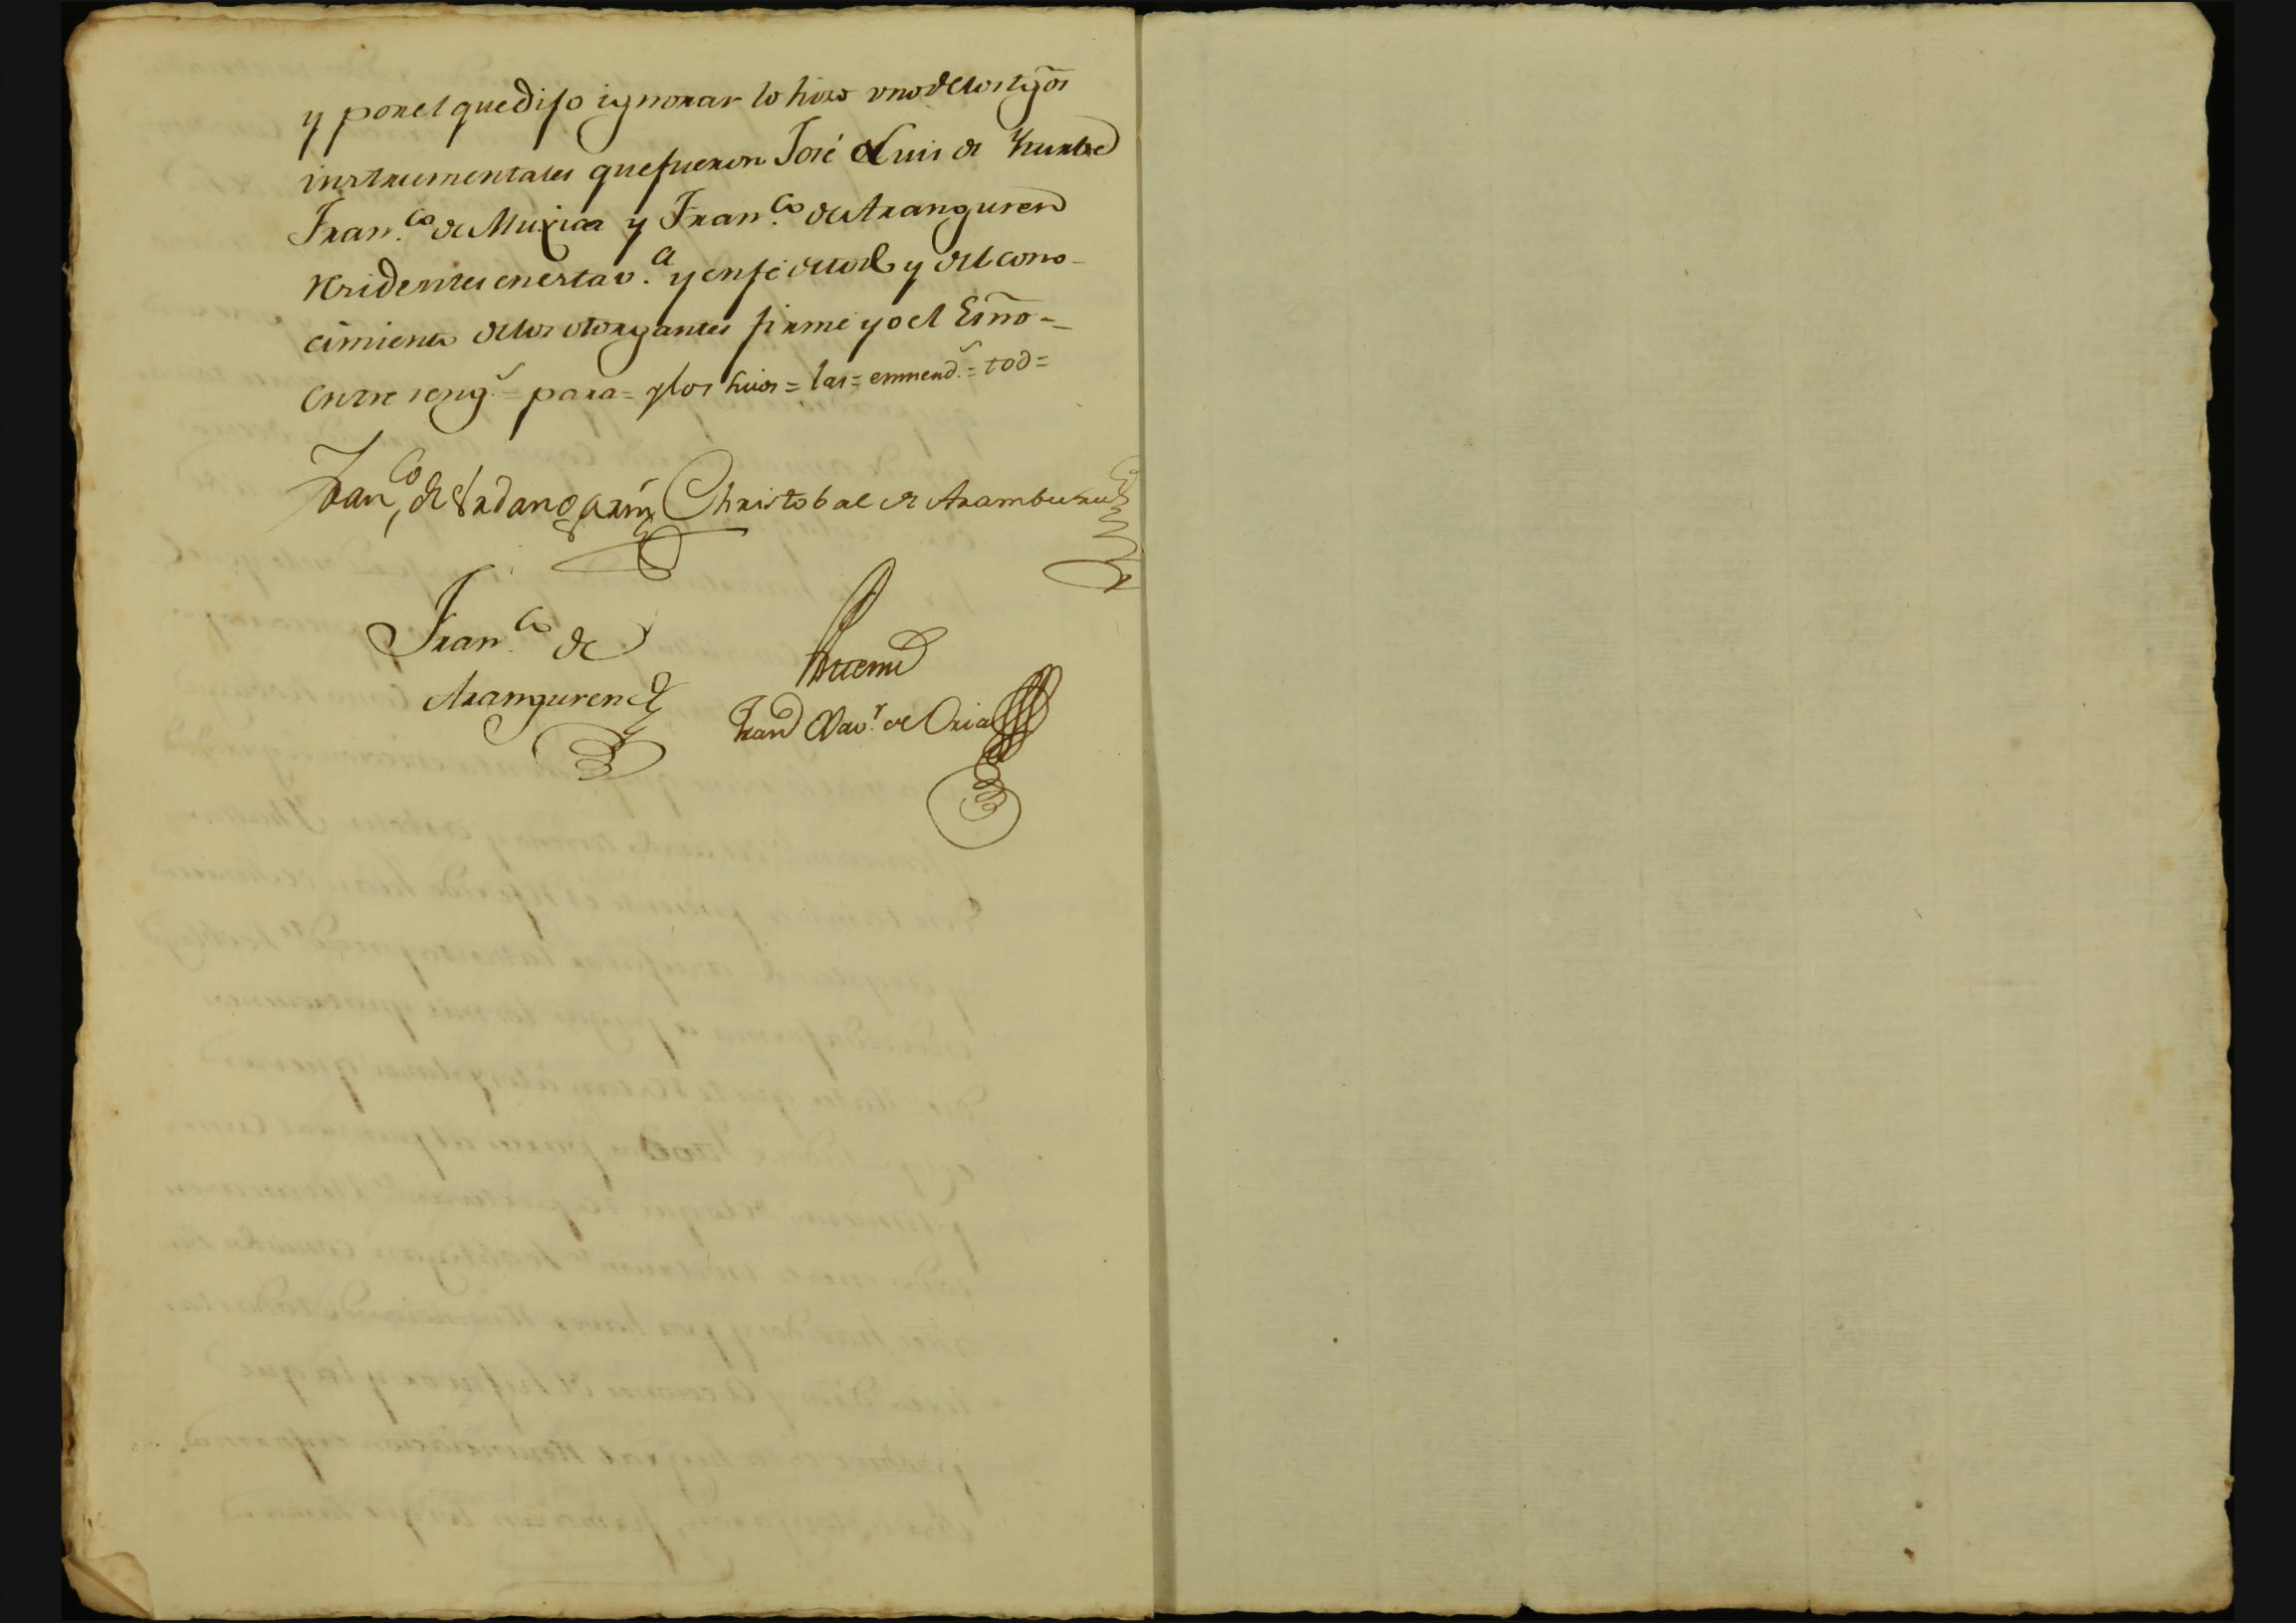 y por el que dijo ignorar lo hizo uno de los tgõs
instrumentales que fueron José Luis de Yturbe
Fran.co de Muxica y Fran.co de Aranguren
residentes en esta v.a y en fe de todo y del cono-
cimiento de los otorgantes firme yo el Ss.no =
Entre reng.s = para = y los hijos = las = emmend.s = tod =
Fran.co de Ardangarin Christobal de Aramburu
Fran.co de
Aranguren
Antemi
Juan Xav.r de Oria